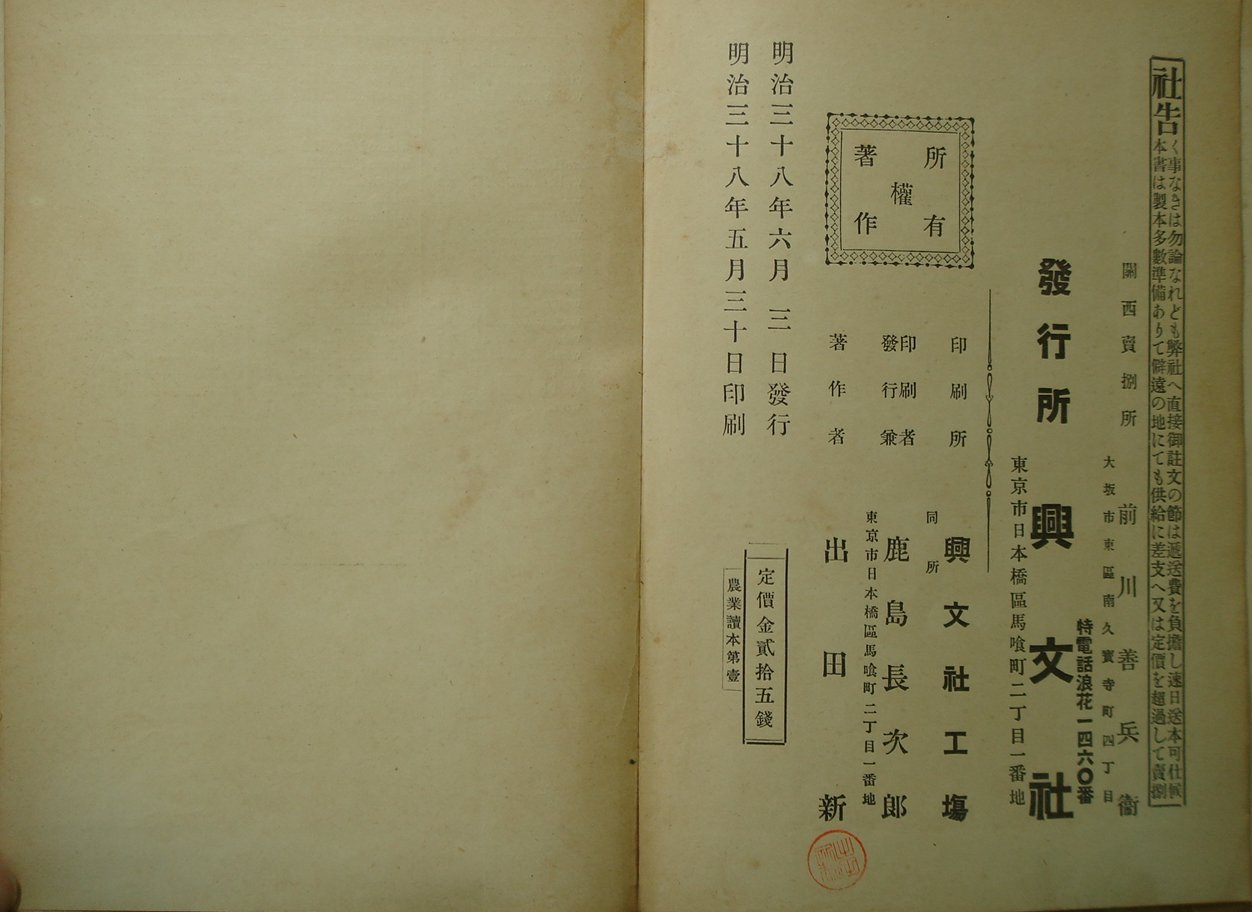 明治三十八年五月三十日印刷
明治三十八年六月三日發行
農業讀本第壹
定價金貳拾五錢
著作
權
所有
著作者 出田新
東京市日本橋區馬喰町二丁目一番地
發行兼
印刷者 鹿島長次郎
同所
印刷所 興文社工場
東京市日本橋區馬喰町二丁目一番地
發行所 興文社
特電話浪花一四六〇番
大坂市東區南久寳寺町四丁目
關西賣捌所 前川善兵衞
社告
本書は製本多數準備ありて僻遠の地にても供給に差支へ又は定價を超過して賣捌
く事なきは勿論なれども弊社へ直接御註文の節は遞送費を負擔し速日送本可仕候